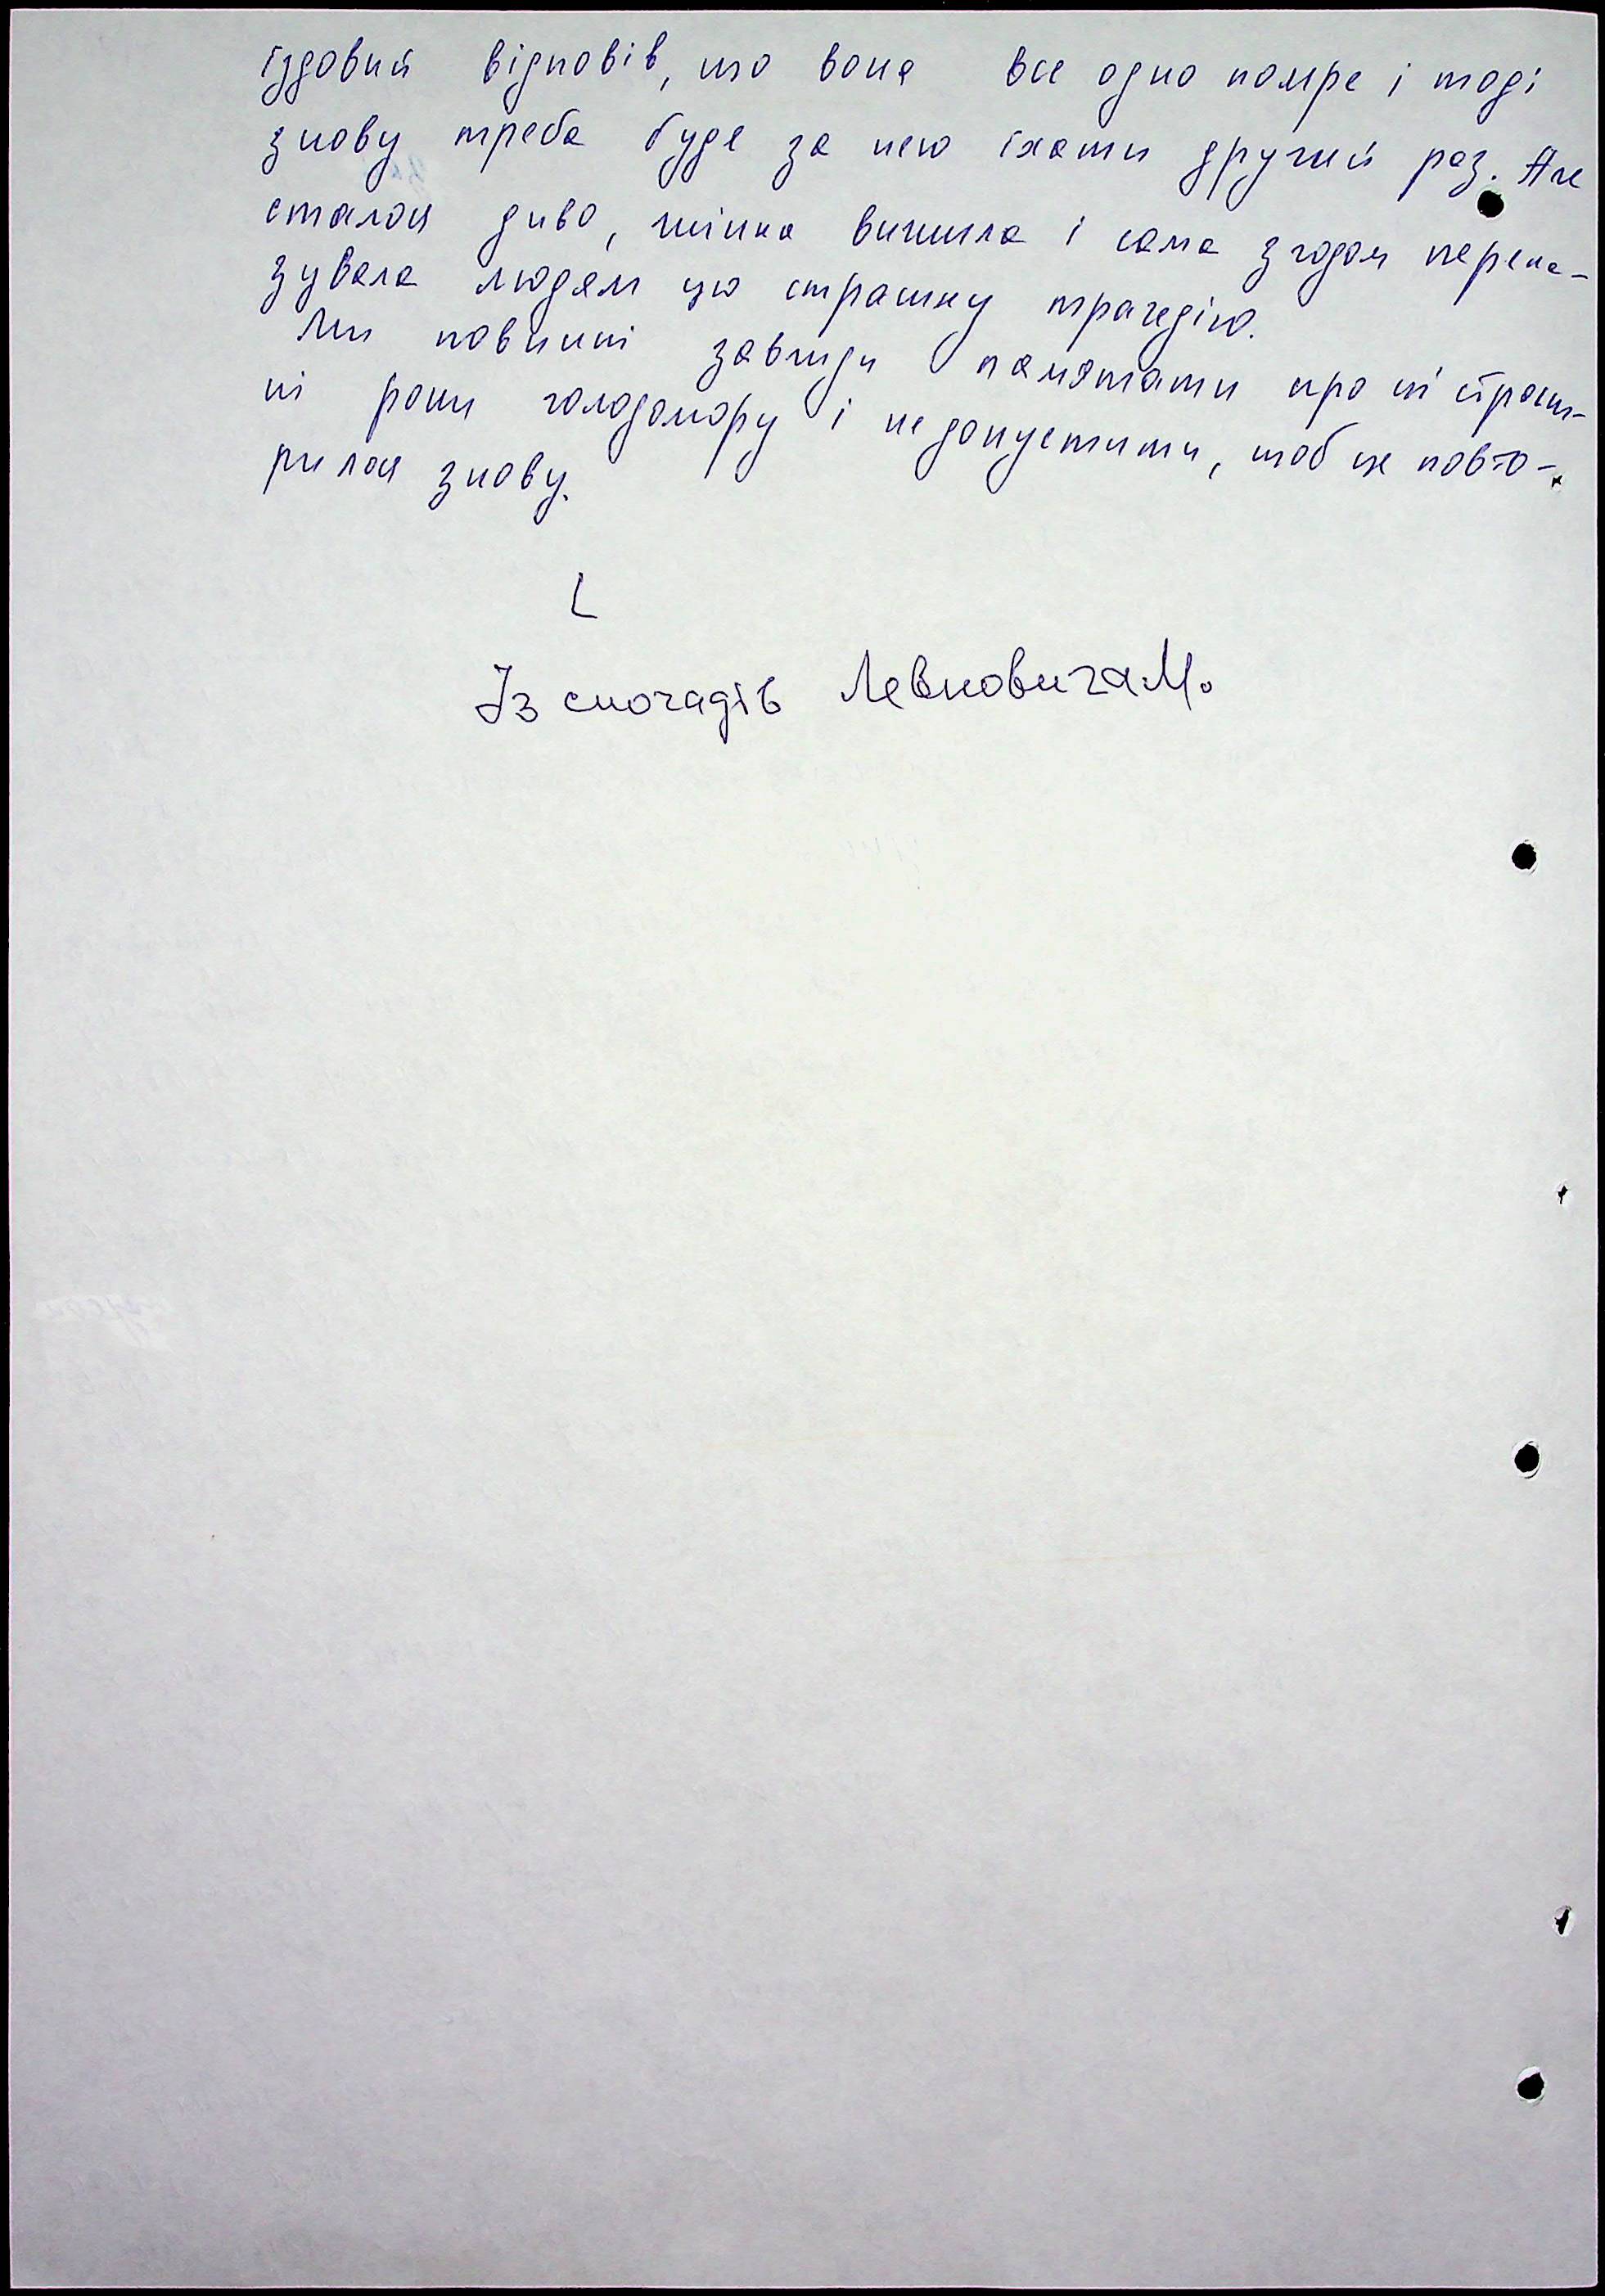 їздовий відповів, що вона все одно помре і тоді
знову треба буде за нею їхати другий раз. Але
сталося диво, жінка вижила і сама згодом перека-
зувала людям цю страшну трагедію.
Ми повинні завжди памятати про ці страш-
ні роки голодомору і не допустити, щоб це повто-
рилося знову.
Із спогадів Левковича М.